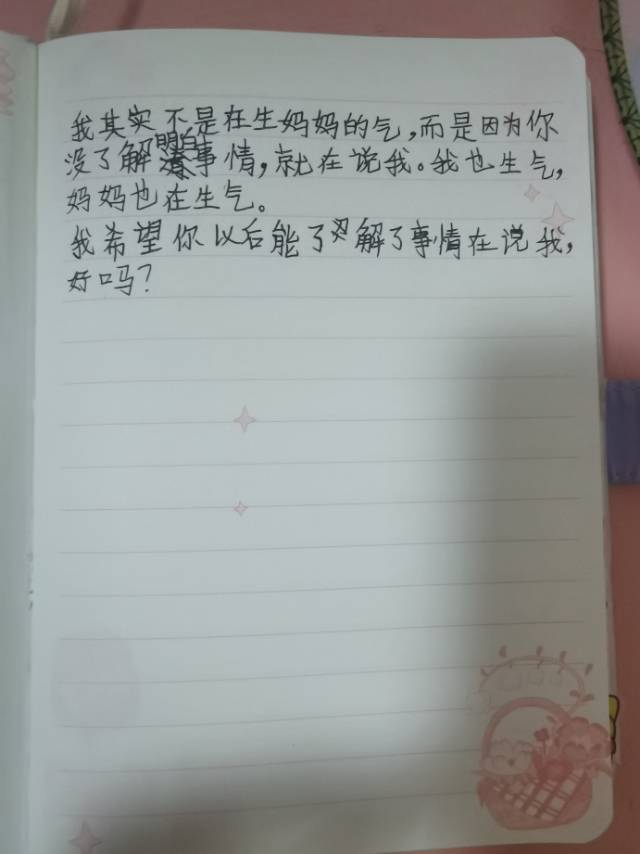 我其实不是在生妈妈的气,而是因为你
没了解明白事情,就在说我。我也生气,
妈妈也在生气。
我希望你以后能了解了事情在说我,
好吗?